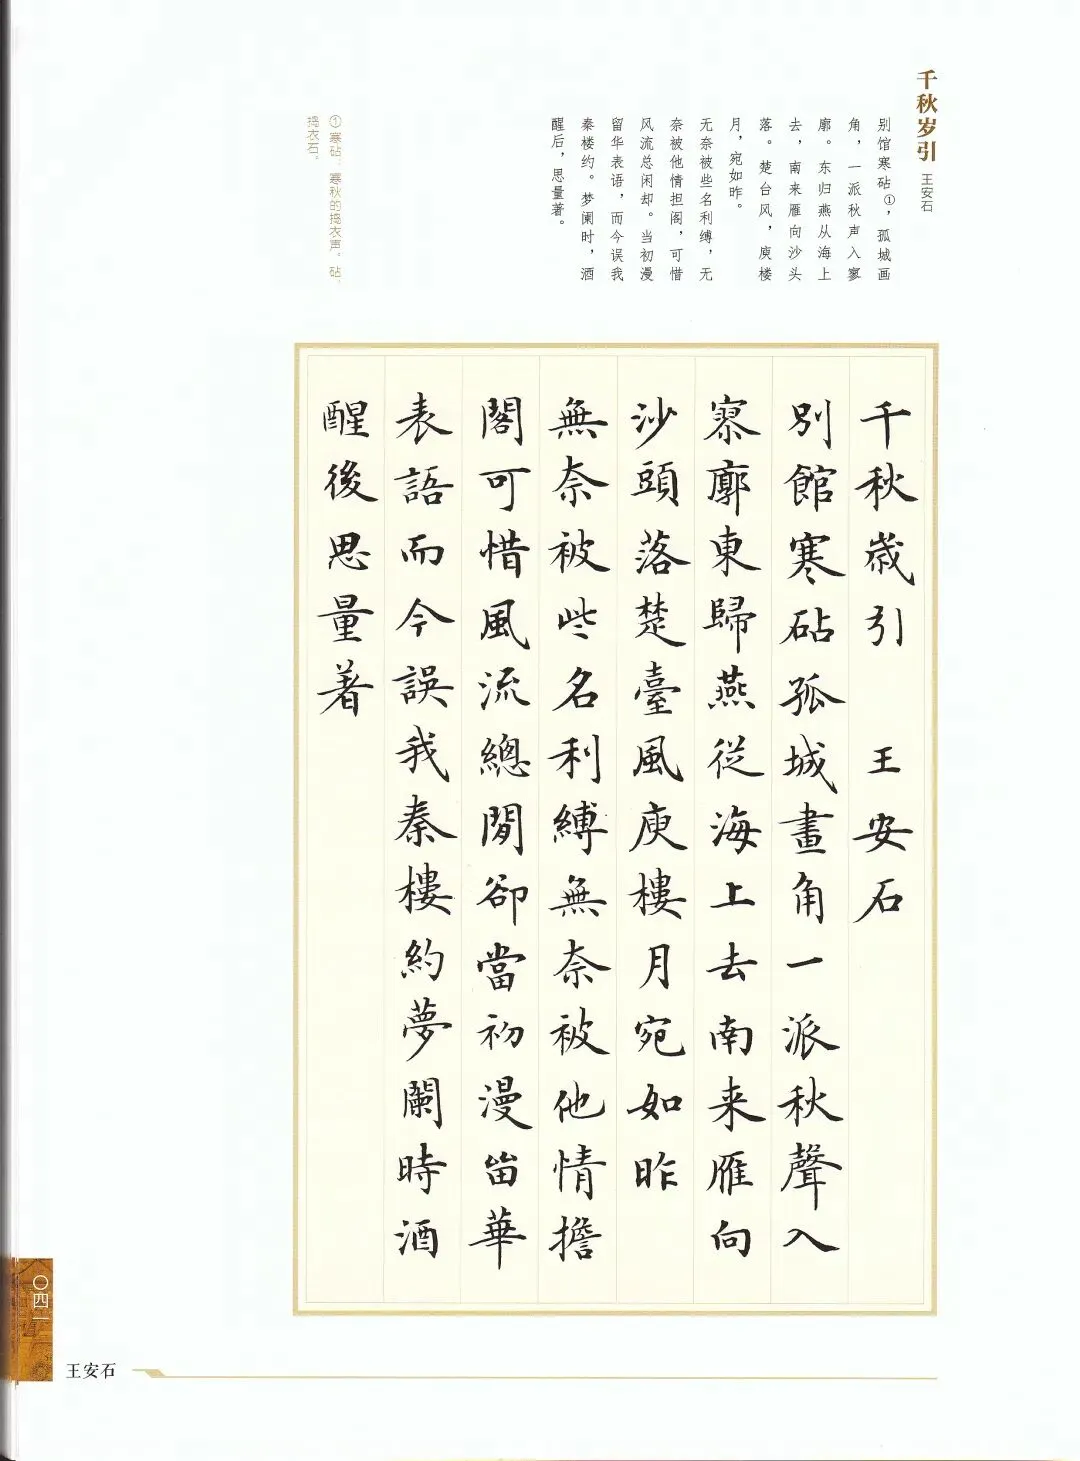 千秋岁引
王安石
别馆寒砧①，孤城画
角，一派秋声入寥
廓。东归燕从海上
去，南来雁向沙头
落。楚台风，庾楼
月，宛如昨。
无奈被些名利缚，无
奈被他情担阁，可惜
风流总闲却。当初漫
留华表语，而今误我
秦楼约。梦阑时，酒
醒后，思量著。
①寒砧：寒秋的捣衣声。砧，
捣衣石。
千秋歲引 王安石
別館寒砧孤城畫角一派秋聲入
寥廓東歸燕從海上去南来雁向
沙頭落楚臺風庾樓月宛如昨
無奈被些名利縛無奈被他情擔
閣可惜風流總閒卻當初漫留華
表語而今誤我秦樓約夢闌時酒
醒後思量著
〇四一
王安石